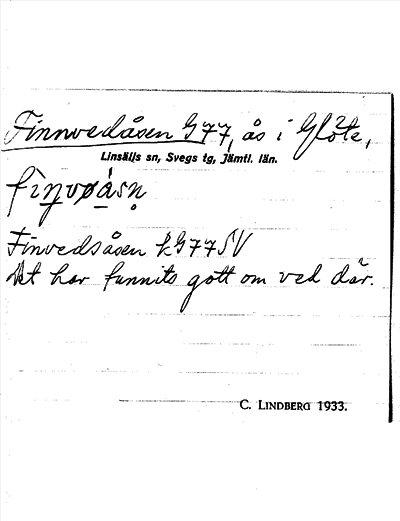 Finnvedåsen G77, ås i Glöte,
Linsälls sn, Svegs tg, Jämtl. län.
Finvedsåsen kG77SV
Det har funnits gott om ved där.
C. LINDBERG 1933.